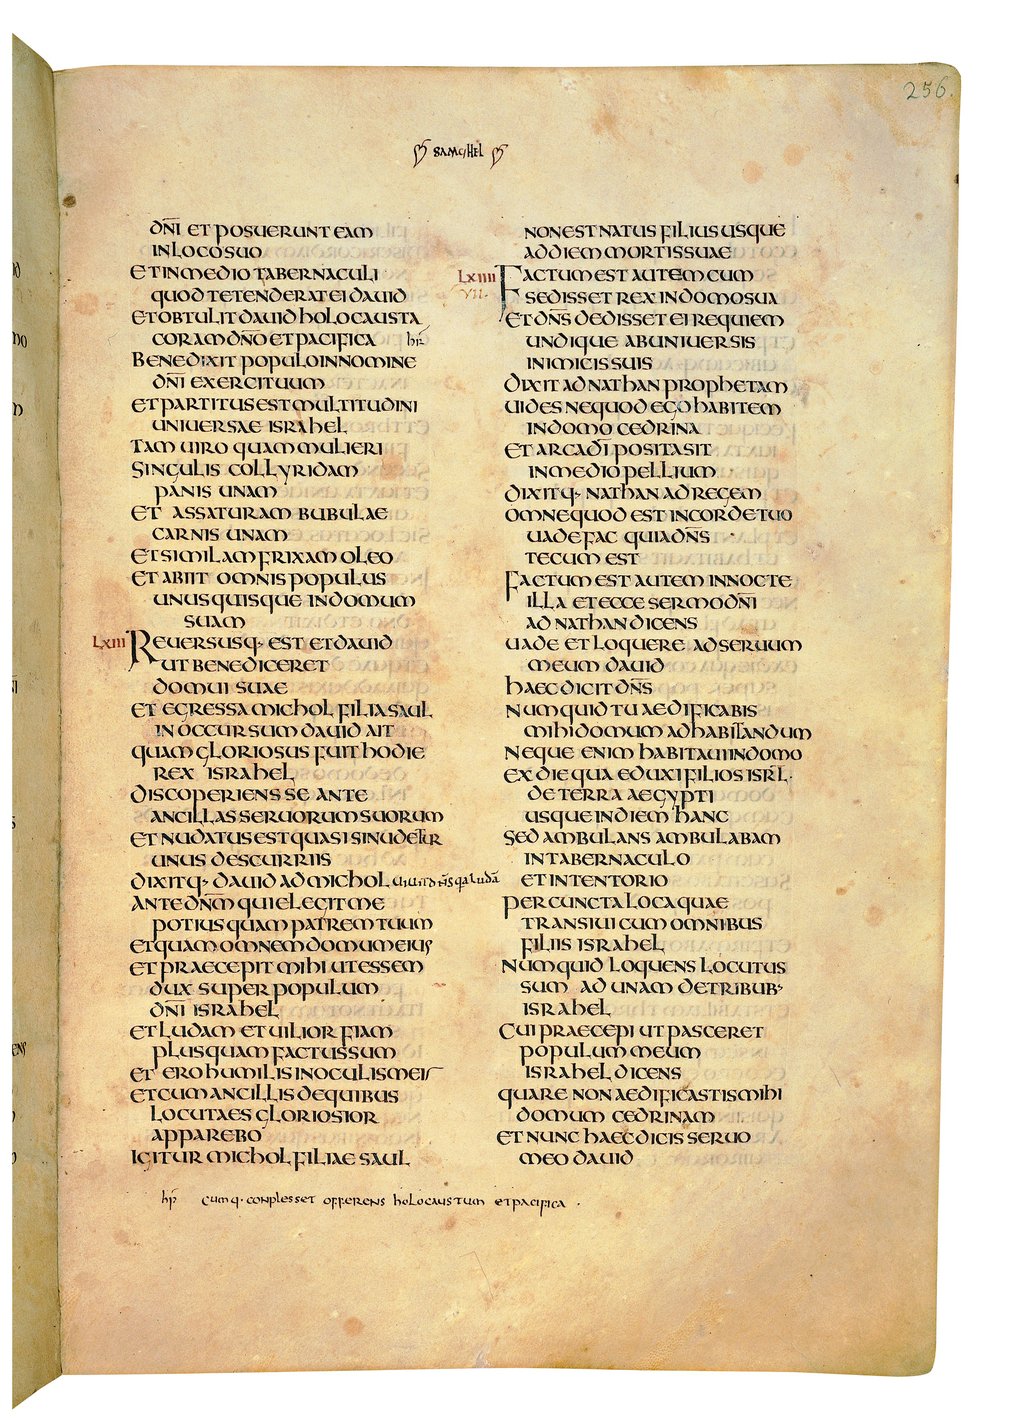 256.
SAMUHEL
DN̄I ET POSUERUNT EAM
IN LOCO SUO
ET IN MEDIO TABERNACULI
QUOD TETENDERAT EI DAUID
ET OBTULIT DAUID HOLOCAUSTA
CORAM DN̄O ET PACIFICA hp̄
BENEDIXIT POPULO IN NOMINE
DN̄I EXERCITUUM
ET PARTITUS EST MULTITUDINI
UNIUERSAE ISRAHEL
TAM UIRO QUAM MULIERI
SINGULIS COLLYRIDAM
PANIS UNAM
ET ASSATURAM BUBULAE
CARNIS UNAM
ET SIMILAM FRIXAM OLEO
ET ABIIT OMNIS POPULUS
UNUSQUISQUE IN DOMUM
SUAM
LXIII REUERSUSQ· EST ET DAUID
UT BENEDICERET
DOMUI SUAE
ET EGRESSA MICHOL FILIA SAUL
IN OCCURSUM DAUID AIT
QUAM GLORIOSUS FUIT HODIE
REX ISRAHEL
DISCOPERIENS SE ANTE
ANCILLAS SERUORUM SUORUM
ET NUDATUS EST QUASI SI NUDETUR
UNUS DESCURRIIS
DIXITQ· DAUID AD MICHOL uiuit dn̄s qa ludā
ANTE DN̄M QUI ELEGIT ME
POTIUS QUAM PATREM TUUM
ET QUAM OMNEM DOMUM EIUS
ET PRAECEPIT MIHI UT ESSEM
DUX SUPER POPULUM
DN̄I ISRAHEL
ET LUDAM ET UILIOR FIAM
PLUS QUAM FACTUS SUM
ET ERO HUMILIS IN OCULIS MEIS
ET CUM ANCILLIS DE QUIBUS
LOCUTA ES GLORIOSIOR
APPAREBO
IGITUR MICHOL FILIAE SAUL
hp̄ cumq· conplesset offerens holocaustum et pacifica ·
NON EST NATUS FILIUS USQUE
AD DIEM MORTIS SUAE
LXIIII FACTUM EST AUTEM CUM
VII· SEDISSET REX IN DOMO SUA
ET DN̄S DEDISSET EI REQUIEM
UNDIQUE AB UNIUERSIS
INIMICIS SUIS
DIXIT AD NATHAN PROPHETAM
UIDES NE QUOD EGO HABITEM
IN DOMO CEDRINA
ET ARCA DĪ POSITA SIT
IN MEDIO PELLIUM
DIXITQ· NATHAN AD REGEM
OMNE QUOD EST IN CORDE TUO
UADE FAC QUIA DN̄S
TECUM EST
FACTUM EST AUTEM IN NOCTE
ILLA ET ECCE SERMO DN̄I
AD NATHAN DICENS
UADE ET LOQUERE AD SERUUM
MEUM DAUID
HAEC DICIT DN̄S
NUMQUID TU AEDIFICABIS
MIHI DOMUM AD HABITANDUM
NEQUE ENIM HABITAUI IN DOMO
EX DIE QUA EDUXI FILIOS ISRL̄·
DE TERRA AEGYPTI
USQUE IN DIEM HANC
SED AMBULANS AMBULABAM
IN TABERNACULO
ET IN TENTORIO
PER CUNCTA LOCA QUAE
TRANSIUI CUM OMNIBUS
FILIIS ISRAHEL
NUMQUID LOQUENS LOCUTUS
SUM AD UNAM DE TRIBUB·
ISRAHEL
CUI PRAECEPI UT PASCERET
POPULUM MEUM
ISRAHEL DICENS
QUARE NON AEDIFICASTIS MIHI
DOMUM CEDRINAM
ET NUNC HAEC DICIS SERUO
MEO DAUID